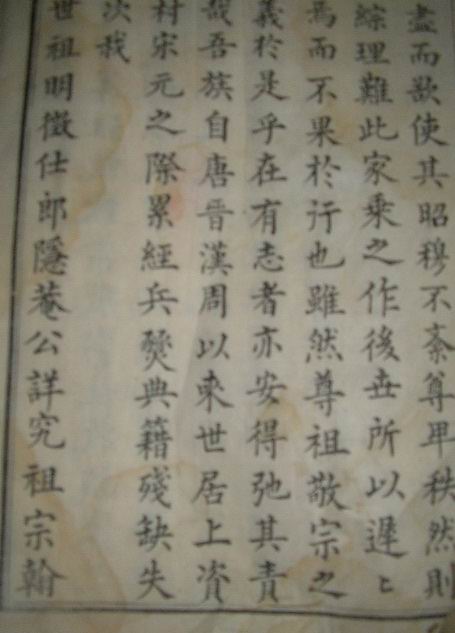 盡而欲使其昭穆不紊尊卑秩然則
綜理難此家乗之作後世所以遲〻
焉而不果於行也雖然尊祖敬宗之
義於是乎在有志者亦安得弛其責
哉吾族自唐晋漢周以來世居上資
村宋元之際累經兵燹典籍殘缺失
次我
世祖明徵仕郎隱菴公詳究祖宗翰